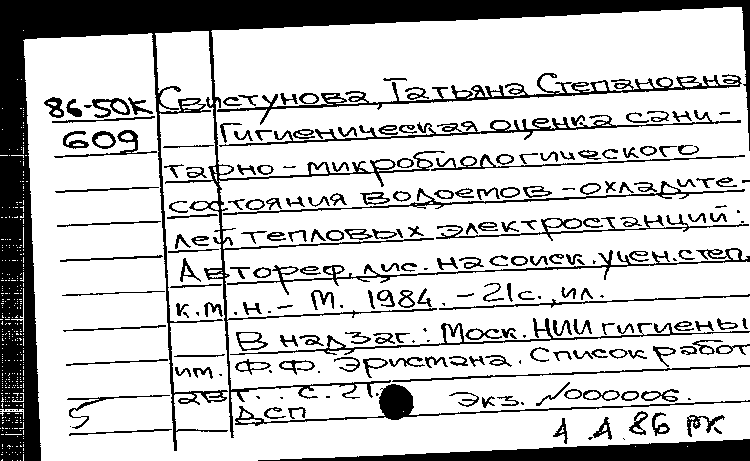 86-50К Свистунова, Татьяна Степановна
609 Гигиеническая оценка сани-
тарно-микробиологического
состояния водоемов-охладите-
лей тепловых электростанций:
Автореф. дис. на соиск. учен. степ.
к.м.н. - М., 1984. - 21с., ил.
В надзаг.: Моск. НИИ гигиены
им. Ф.Ф. Эрисмана. Список работ
авт.: с. 21.
ДСП Экз. №000006.
5
1 А 86 РК